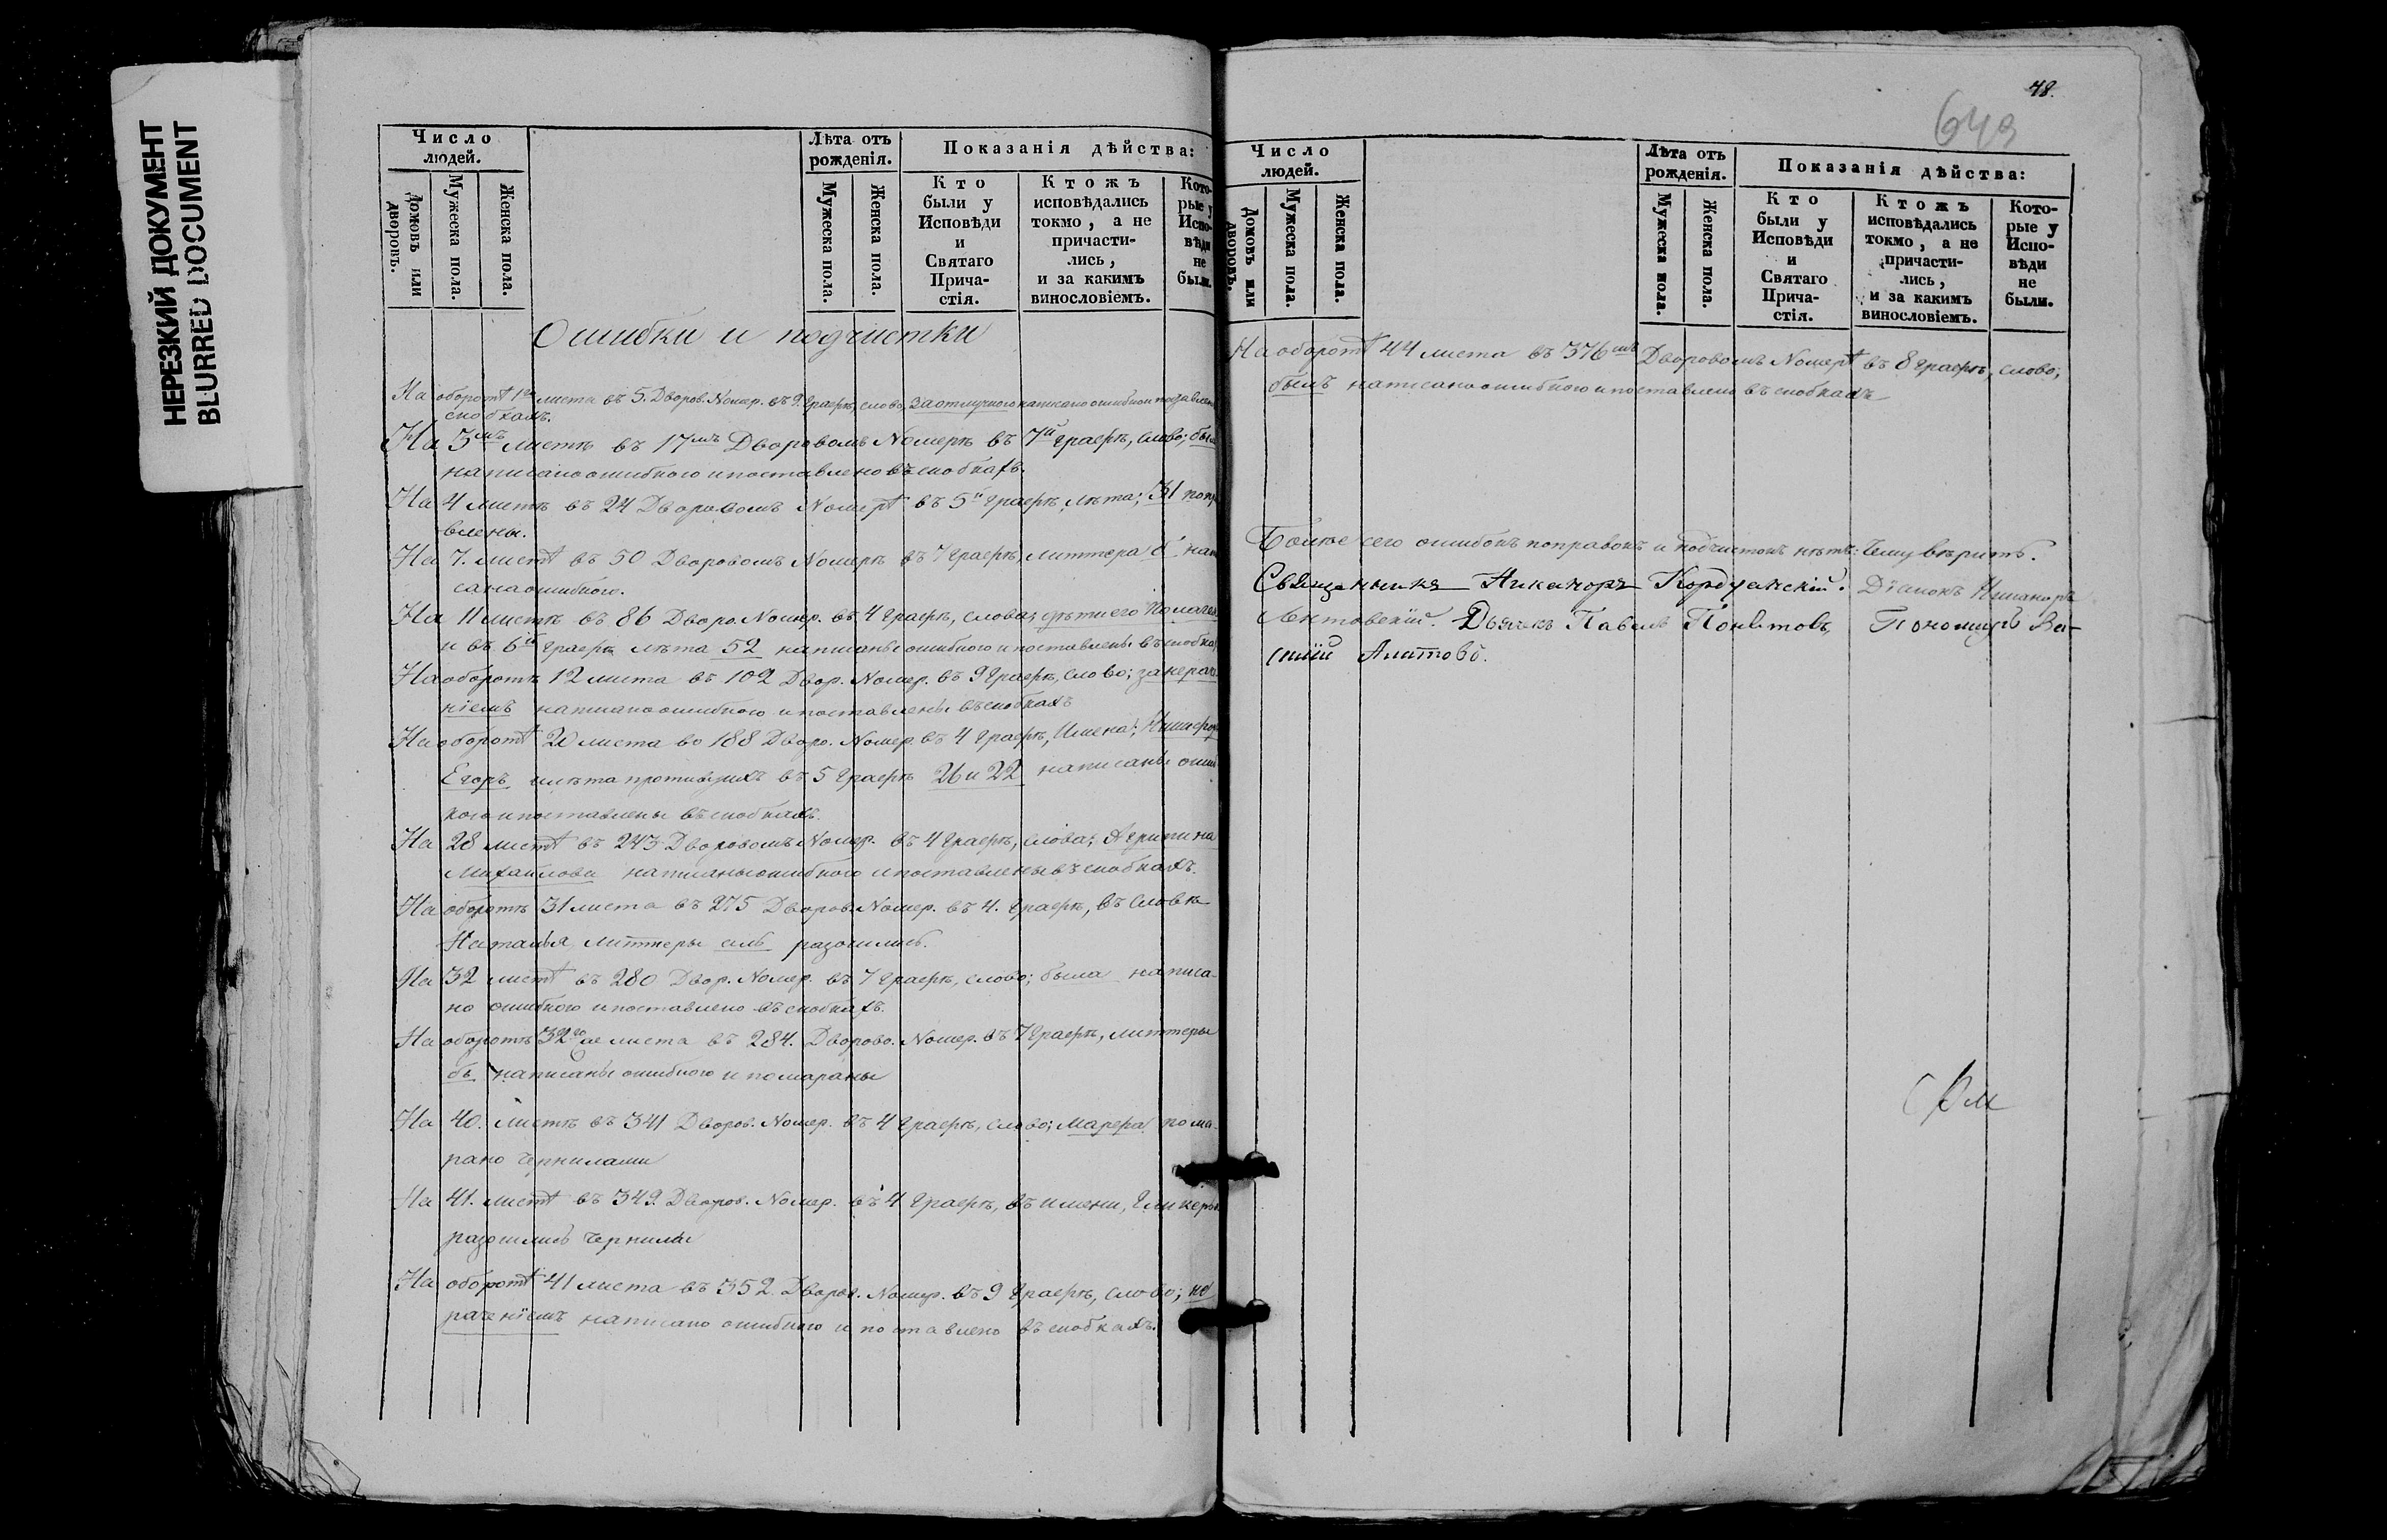 НЕРЕЗКИЙ ДОКУМЕНТ
BLURRED DOCUMENT
Число людей.
Лѣта отъ рожденія.
Показанія дѣйства:
Домовъ или дворовъ.
Мужеска пола.
Женска пола.
Мужеска пола.
Женска пола.
Кто были у Исповѣди и Святаго Прича-стія.
Ктожъ исповѣдались токмо, а не причасти-лись, и за какимъ винословіемъ.
Кото-рые у Испо-вѣди не были.
Ошибки и подчистки
На оборотѣ 1го листа въ 5. Дворов. Номер. въ 9. Графѣ, слово, за отлучкою написано ошибкою
скобкахъ.
На 3мъ листѣ въ 17мъ Дворовомъ Номерѣ въ 7й графѣ, слово;
написано ошибкою и поставлено въ скобкахъ.
На 4 листѣ въ 24 Дворовомъ Номерѣ въ 5й Графѣ, лѣта; 31 попра
влены.
На 7. листѣ въ 50 Дворовомъ Номерѣ въ 7 Графѣ, литтера б напи
сана ошибкою.
На 11 листѣ въ 86 Дворо. Номер. въ 4 Графѣ, слова; дѣти его
и въ 6й Графѣ лѣта 52 написаны ошибкою и поставлены въ скобка
На оборотѣ 12 листа въ 102 Двор. Номер. въ 9 Графѣ, слово; за нерач
ніемъ написано ошибкою и поставлены въ скобкахъ
На оборотѣ 20 листа во 188 Дворо. Номер. въ 4 Графѣ, Имена; Никифор
Егоръ и лѣта противу ихъ въ 5 Графѣ 26 и 22 написаны ошиб
кою и поставлены въ скобкахъ.
На 28 листѣ въ 243 Дворовомъ Номер. въ 4 Графѣ, слова; Агрипина
Михайлова написаны ошибкою и поставлены въ скобкахъ.
На оборотѣ 31 листа въ 275 Дворов. Номер. въ 4. Графѣ, въ словѣ
Наталья литтеры аль разошлись.
На 32 листѣ въ 280 Двор. Номер. въ 7 Графѣ, слово; была написа-
но ошибкою и поставлено въ скобкахъ.
На оборотѣ 32го листа въ 284. Дворово. Номер. въ 7 Графѣ, литтеры
бы написаны ошибкою и помараны
На 40. листѣ въ 341 Дворов. Номер. въ 4 Графѣ, слово; Марфа пома-
рано чернилами
На 41. листѣ въ 349. Дворов. Номер. въ 4 Графѣ, въ имени, Гликерья
разошлись чернилы
На оборотѣ 41 листа въ 352. Дворов. Номер. въ 9 Графѣ, слово; не
раченіемъ написано ошибкою и поставлено въ скобкахъ.
48.
649
Число людей.
Лѣта отъ рожденія.
Показанія дѣйства:
Домовъ или дворовъ.
Мужеска пола.
Женска пола.
Мужеска пола.
Женска пола.
Кто были у Исповѣди и Святаго Прича-стія.
Ктожъ исповѣдались токмо, а не причасти-лись, и за какимъ винословіемъ.
Кото-рые у Испо-вѣди не были.
На оборотѣ 44 листа въ 376мъ Дворовомъ Номерѣ въ 8 Графѣ, слово;
былъ написано ошибкою и поставлено въ скобкахъ
Болѣе сего ошибокъ поправокъ и подчистокъ нѣтъ: Чему вѣрить.
Священникъ Никаноръ Діаконъ Никаноръ
Дьячекъ Павелъ Пономарь Ва-
силій